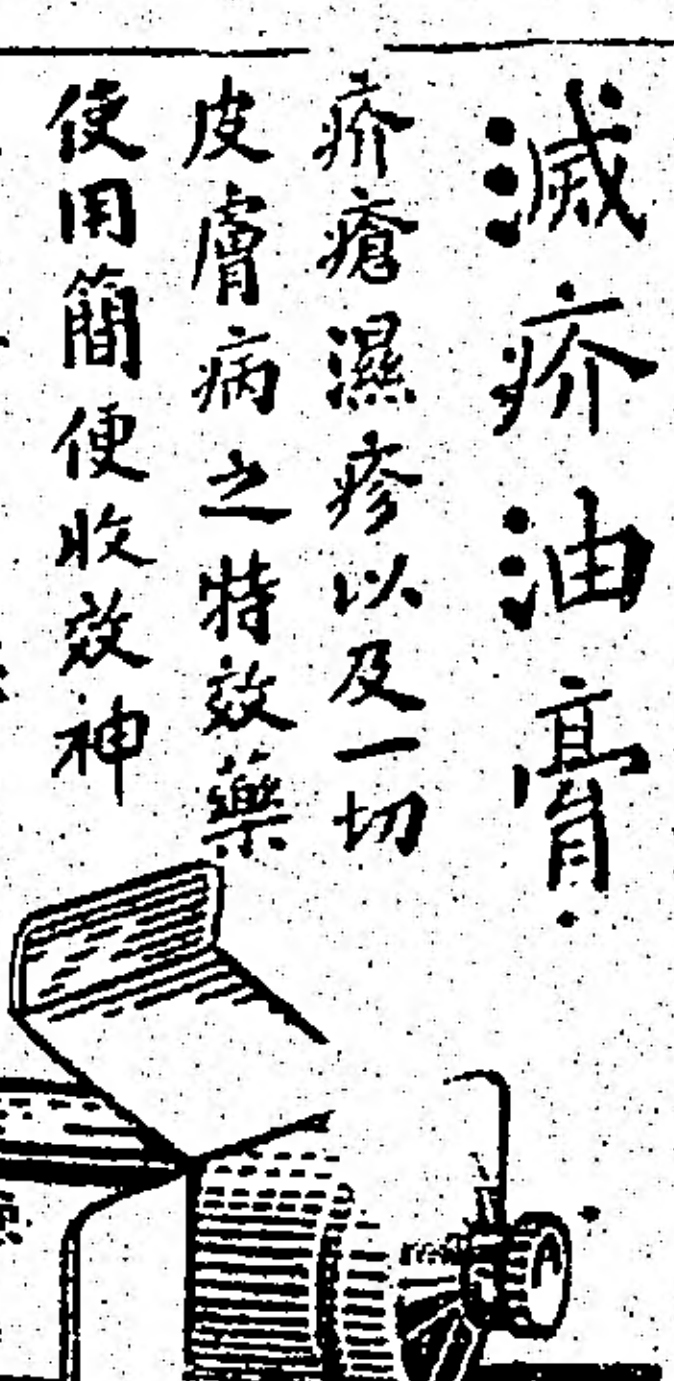 滅疥油膏
疥瘡濕疹以及一切
皮膚病之特效藥
使用簡便收效神